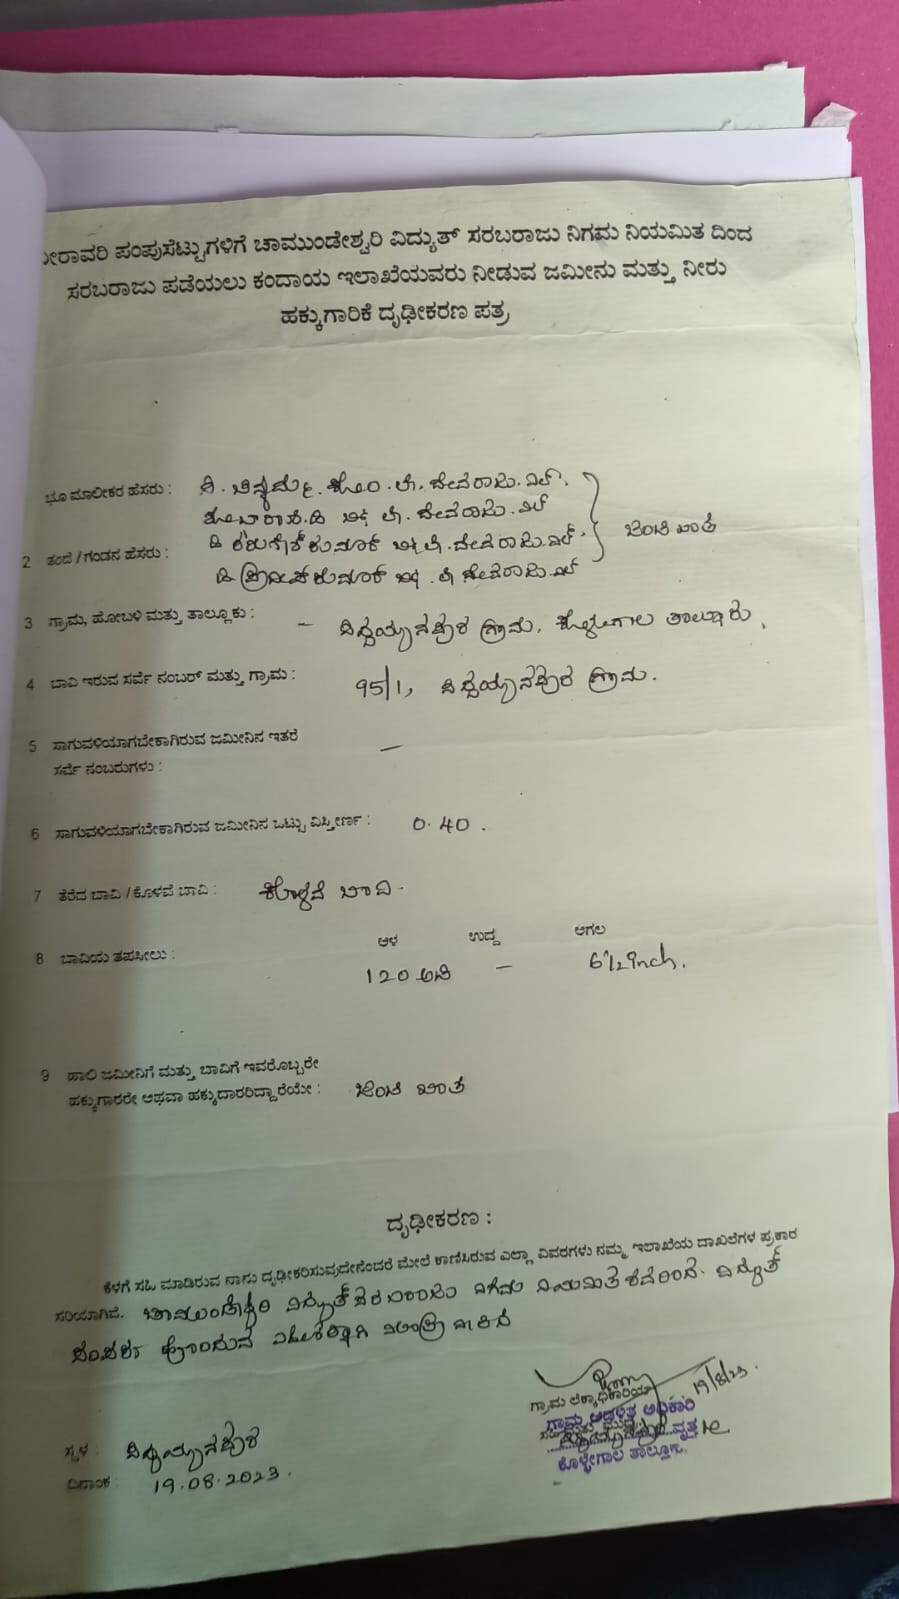 ನೀರಾವರಿ ಪಂಪುಸೆಟ್ಟುಗಳಿಗೆ ಚಾಮುಂಡೇಶ್ವರಿ ವಿದ್ಯುತ್ ಸರಬರಾಜು ನಿಗಮ ನಿಯಮಿತ ದಿಂದ
ಸರಬರಾಜು ಪಡೆಯಲು ಕಂದಾಯ ಇಲಾಖೆಯವರು ನೀಡುವ ಜಮೀನು ಮತ್ತು ನೀರು
ಹಕ್ಕುಗಾರಿಕೆ ದೃಢೀಕರಣ ಪತ್ರ
ಭೂ ಮಾಲೀಕರ ಹೆಸರು : ಪಿ. ಚಿನ್ನಮ್ಮ ಕೋಂ. ಲೇ. ದೇವರಾಜು. ಎಲ್.
ಡಿ ಬಿನ್ ಲೇ. ದೇವರಾಜು. ಎಲ್
2 ತಂದೆ / ಗಂಡನ ಹೆಸರು : ಡಿ ಬಿನ್ ಲೇ. ದೇವರಾಜು. ಎಲ್. ಜಂಟಿ ಖಾತೆ
ಡಿ ಪ್ರದೀಪ್‌ಕುಮಾರ್ ಬಿನ್. ಲೇ ದೇವರಾಜು. ಎಲ್
3 ಗ್ರಾಮ, ಹೋಬಳಿ ಮತ್ತು ತಾಲ್ಲೂಕು : – ಸಿದ್ದಯ್ಯನಪುರ ಗ್ರಾಮ, ಕೊಳ್ಳೇಗಾಲ ತಾಲ್ಲೂಕು,
4 ಬಾವಿ ಇರುವ ಸರ್ವೆ ನಂಬರ್ ಮತ್ತು ಗ್ರಾಮ : 95/1, ಸಿದ್ದಯ್ಯನಪುರ ಗ್ರಾಮ.
5 ಸಾಗುವಳಿಯಾಗಬೇಕಾಗಿರುವ ಜಮೀನಿನ ಇತರೆ –
ಸರ್ವೆ ನಂಬರುಗಳು :
6 ಸಾಗುವಳಿಯಾಗಬೇಕಾಗಿರುವ ಜಮೀನಿನ ಒಟ್ಟು ವಿಸ್ತೀರ್ಣ : 0.40.
7 ತೆರೆದ ಬಾವಿ / ಕೊಳವೆ ಬಾವಿ : ಕೊಳವೆ ಬಾವಿ.
ಆಳ ಉದ್ದ ಅಗಲ
8 ಬಾವಿಯ ತಪಸೀಲು : 120 ಅಡಿ – 6½ inch.
9 ಹಾಲಿ ಜಮೀನಿಗೆ ಮತ್ತು ಬಾವಿಗೆ ಇವರೊಬ್ಬರೇ
ಹಕ್ಕುಗಾರರೇ ಅಥವಾ ಹಕ್ಕುದಾರರಿದ್ದಾರೆಯೇ : ಜಂಟಿ ಖಾತೆ
ದೃಢೀಕರಣ :
ಕೆಳಗೆ ಸಹಿ ಮಾಡಿರುವ ನಾನು ದೃಢೀಕರಿಸುವುದೇನೆಂದರೆ ಮೇಲೆ ಕಾಣಿಸಿರುವ ಎಲ್ಲಾ ವಿವರಗಳು ನಮ್ಮ ಇಲಾಖೆಯ ದಾಖಲೆಗಳ ಪ್ರಕಾರ
ಸರಿಯಾಗಿವೆ. ಚಾಮುಂಡೇಶ್ವರಿ ವಿದ್ಯುತ್ ಸರಬರಾಜು ನಿಗಮ ನಿಯಮಿತ ವಿದ್ಯುತ್
ಸಂಪರ್ಕ ಹೊಂದುವ
ಗ್ರಾಮ ಲೆಕ್ಕಾಧಿಕಾರಿಯ 19/8/23.
ಗ್ರಾಮ ಆಡಳಿತ ಅಧಿಕಾರಿ
ಸಹಿ ವೃತ್ತ
ಕೊಳ್ಳೇಗಾಲ ತಾಲ್ಲೂಕು.
ಸ್ಥಳ : ಸಿದ್ದಯ್ಯನಪುರ
ದಿನಾಂಕ : 19.08.2023.